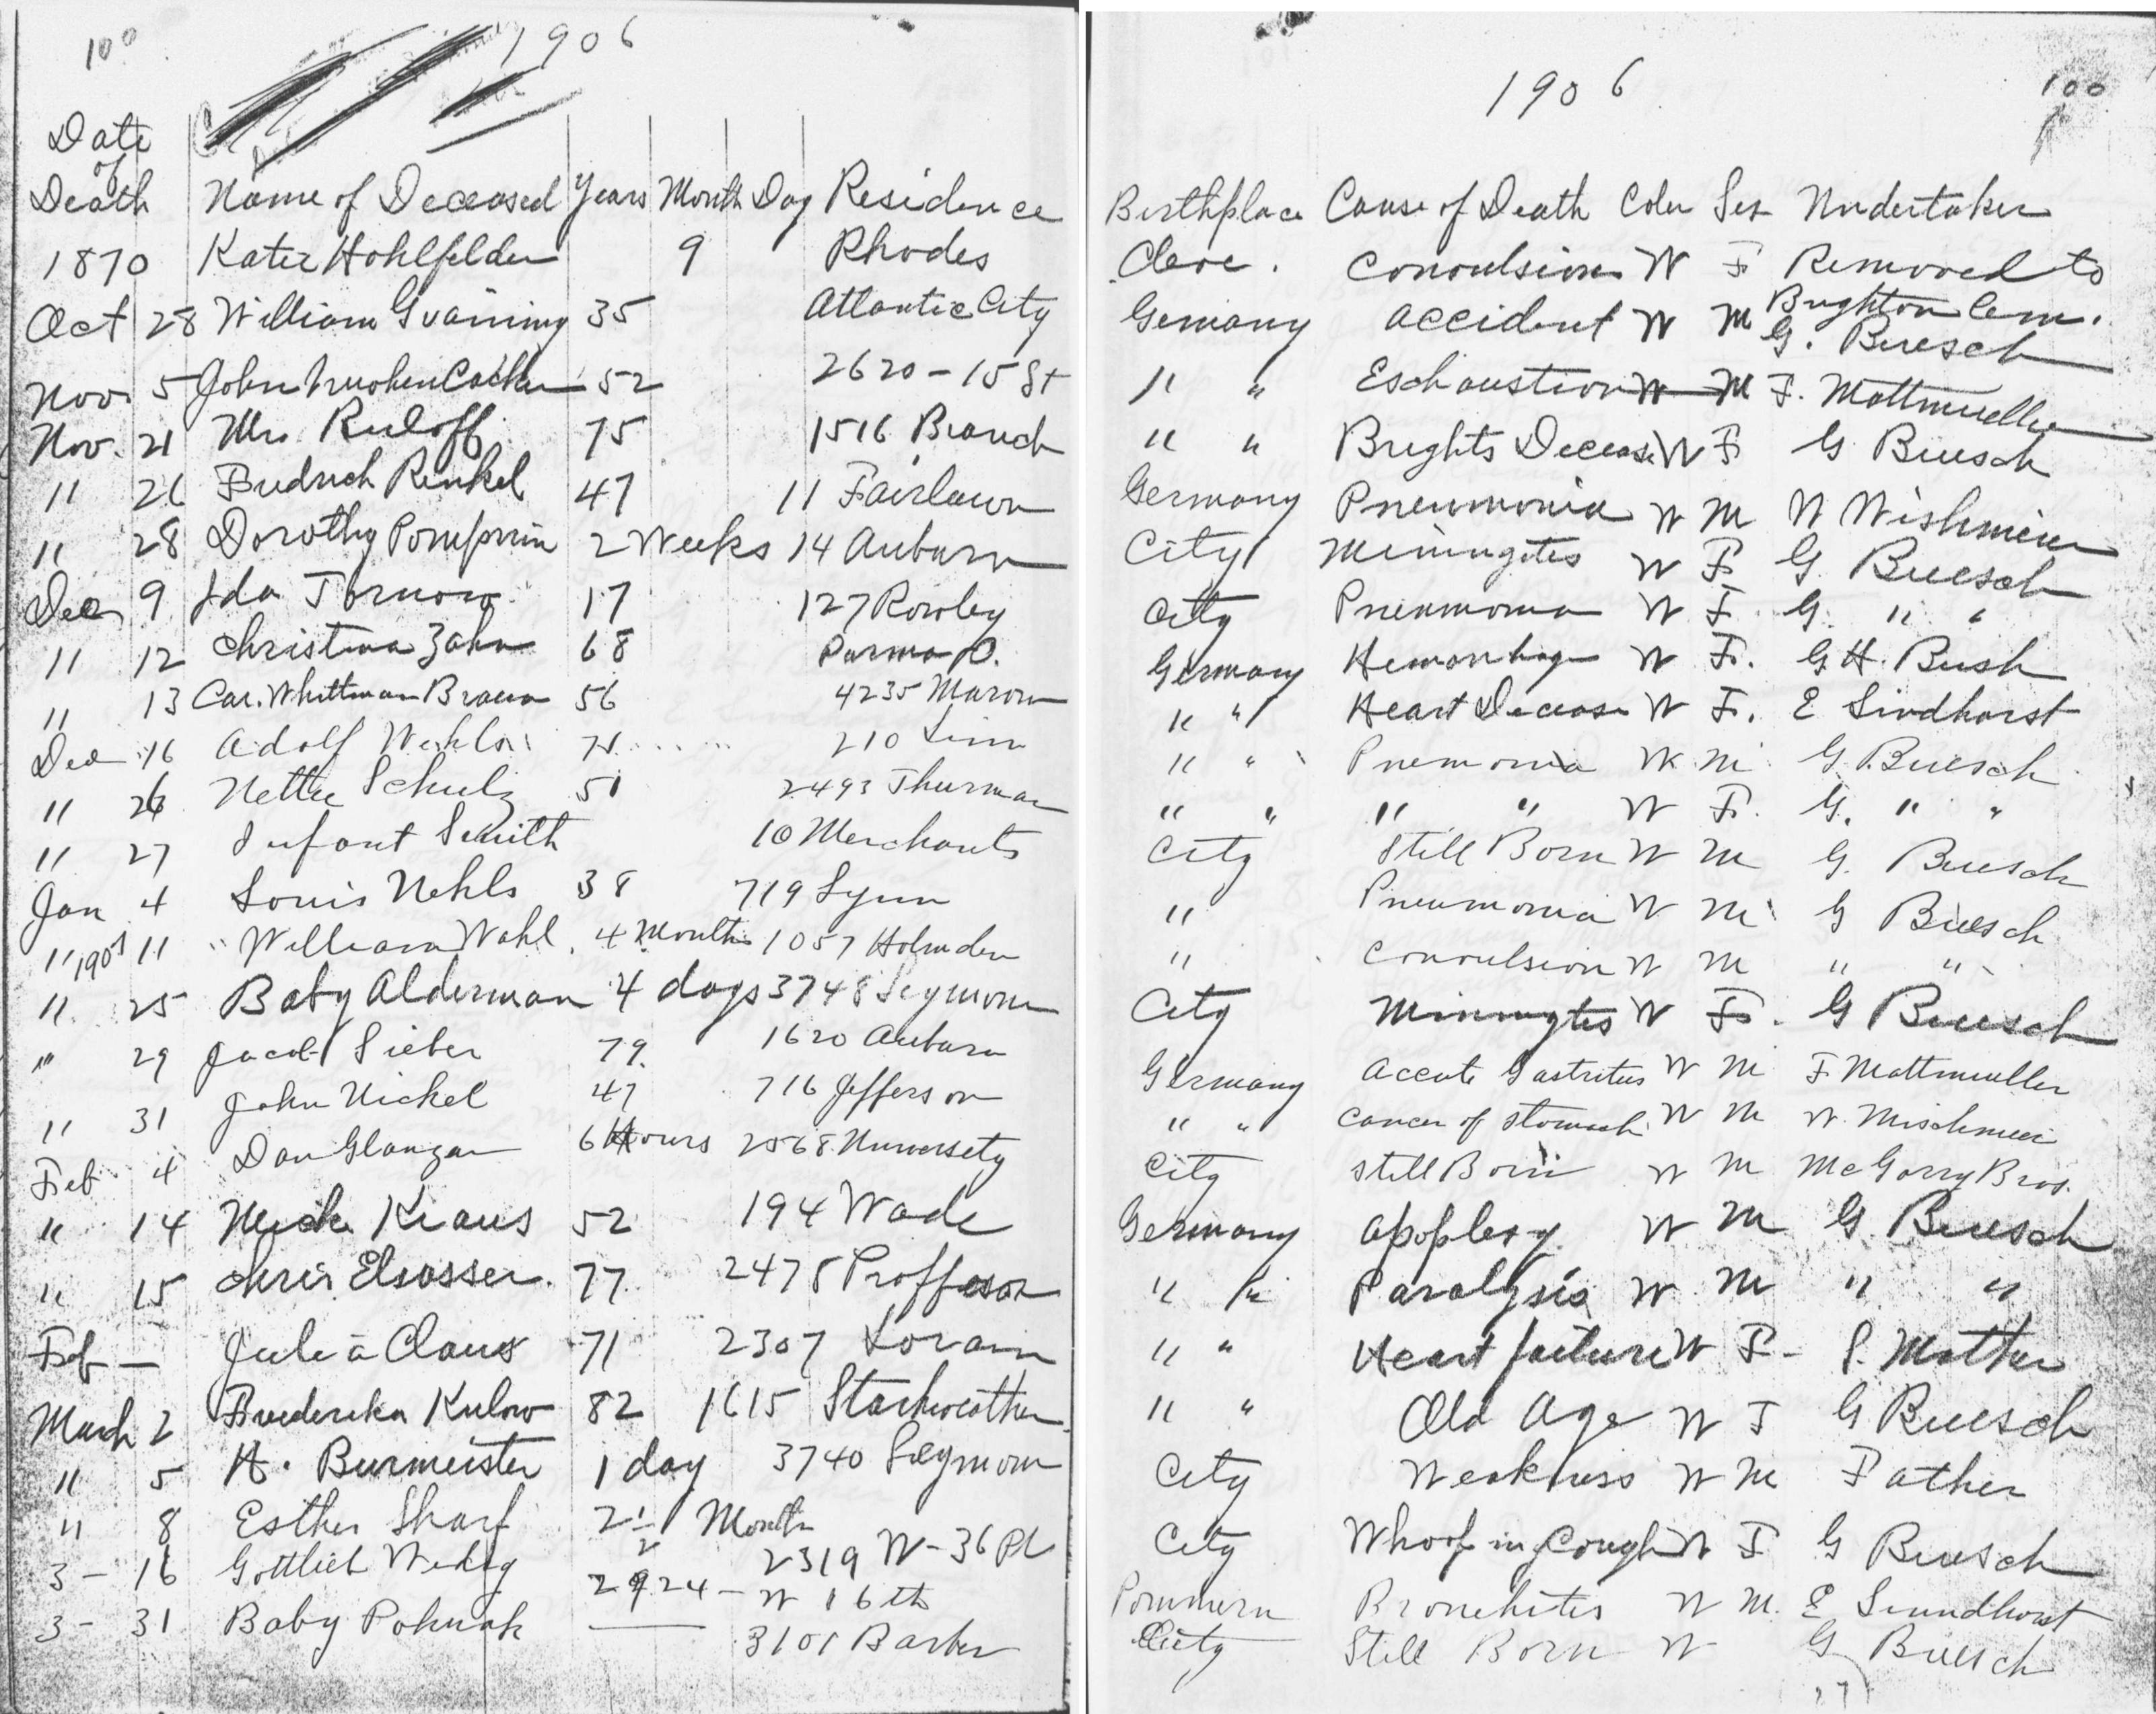 100
1906
Date
of
Death Name of Deceased Years Month Day Residence
1870 Katie Hohlfelder 9 Rhodes
Oct 28 William 35 Atlantic City
Nov 5 John 52 2620 - 15 St
Nov. 21 Mrs. Ruloff 75 1516 Branch
" 26 Fredrich Rinkel 47 11 Fairlawn
" 28 Dorothy 2 Weeks 14 Auburn
Dec 9 Ida Tornow 17 127 Rowley
" 12 Christina Zahn 68 Parma O.
" 13 Car. Whittman Braun 56 4235
Dec 16 Adolf 210 Linn
" 26 Nettie Schulz 51 2493 Thurman
" 27 Infant Smith 10 Merchants
Jan 4 Louis Nehls 38 719 Lynn
" 1907 11 William Wahl 4 Months 1057 Holmden
" 25 Baby Alderman 4 days 3748 Seymour
" 29 Jacob Sieber 79 1620 Auburn
" 31 John Nickel 47 716 Jefferson
Feb 4 Dan Glanzan 6 Hours 2568 University
" 14 Kraus 52 194 Wade
" 15 Chris Elsasser. 77 2478 Proffesor
Feb — Julia Claus 71 2307 Lorain
March 2 Frederika Kulow 82 1615 Starkweather
" 5 H. Burmeister 1 day 3740 Seymour
" 8 Esther Sharf 2 1/2 Month
3 - 16 Gottlieb 2319 W - 36 Pl
2924 - W 16th
3 - 31 Baby Pokurak — 3101 Barber
1906
100
Birthplace Cause of Death Color Sex Undertaker
Cleve. Convulsions W F Removed to
Brighton Cem.
Gemany Accident W M G. Buesch
" " Eschaustion W M F. Mattmueller
" " Brights Decease W F G Buesch
Germany Pneumonia W M W Wishmeier
City Miningites W F G. Buesch
City Pneumonia W F. G. " "
Germany Hemorrhage W F. G H. Bush
" " Heart Decease W F. E Lindhorst
" " Pnemonia W M G. Buesch
" " " " W F. G. " "
City Still Born W M G. Buesch
" Pneumonia W M G Buesch
" Convulsion W M " "
City Miningtes W F. G Buesch
Germany Accute Gastritus W M F Mattmuller
" " Cancer of Stomach W M W. Mischmeir
City Still Born W M McGorry Bros.
Germany Apoplexy W M G. Buesch
" " Paralysis W M " "
" " Heart failure W F - Matther
" " Old Age W F G Buesch
City Weakness W M Father
City Whoopin Cough W F G Buesch
Pommern Bronchites W M. E Linndhorst
City Still Born W G Buesch